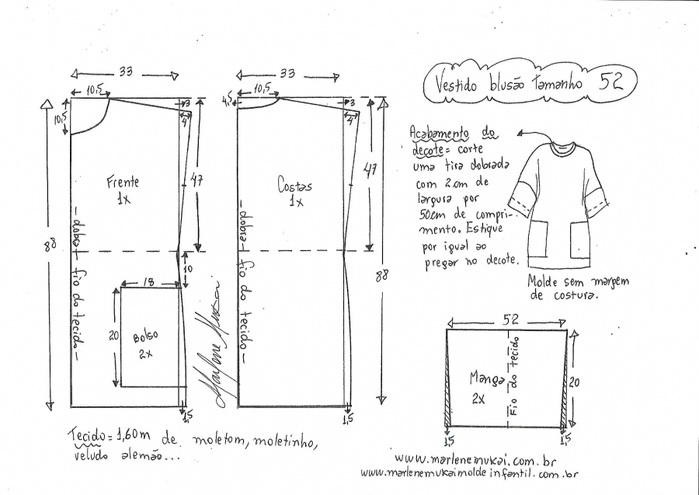 Vestido blusão tamanho 52
33
10,5
10,5
3
4
88
47
Frente
1x
-dobra- fio do tecido-
10
18
20
Bolso
2x
1,5
33
10,5
4,5
3
4
47
88
Costas
1x
-dobra- fio do tecido-
1,5
Marlene Mukai
Acabamento do
decote= corte
uma tira dobrada
com 2cm de
largura por
50cm de compri-
mento. Estique
por igual ao
pregar no decote.
Molde sem margem
de costura.
52
Manga
2x
Fio do tecido
20
1,5
1,5
Tecido= 1,60m de moletom, moletinho,
veludo alemão...
www.marlenemukai.com.br
www.marlenemukaimoldeinfantil.com.br